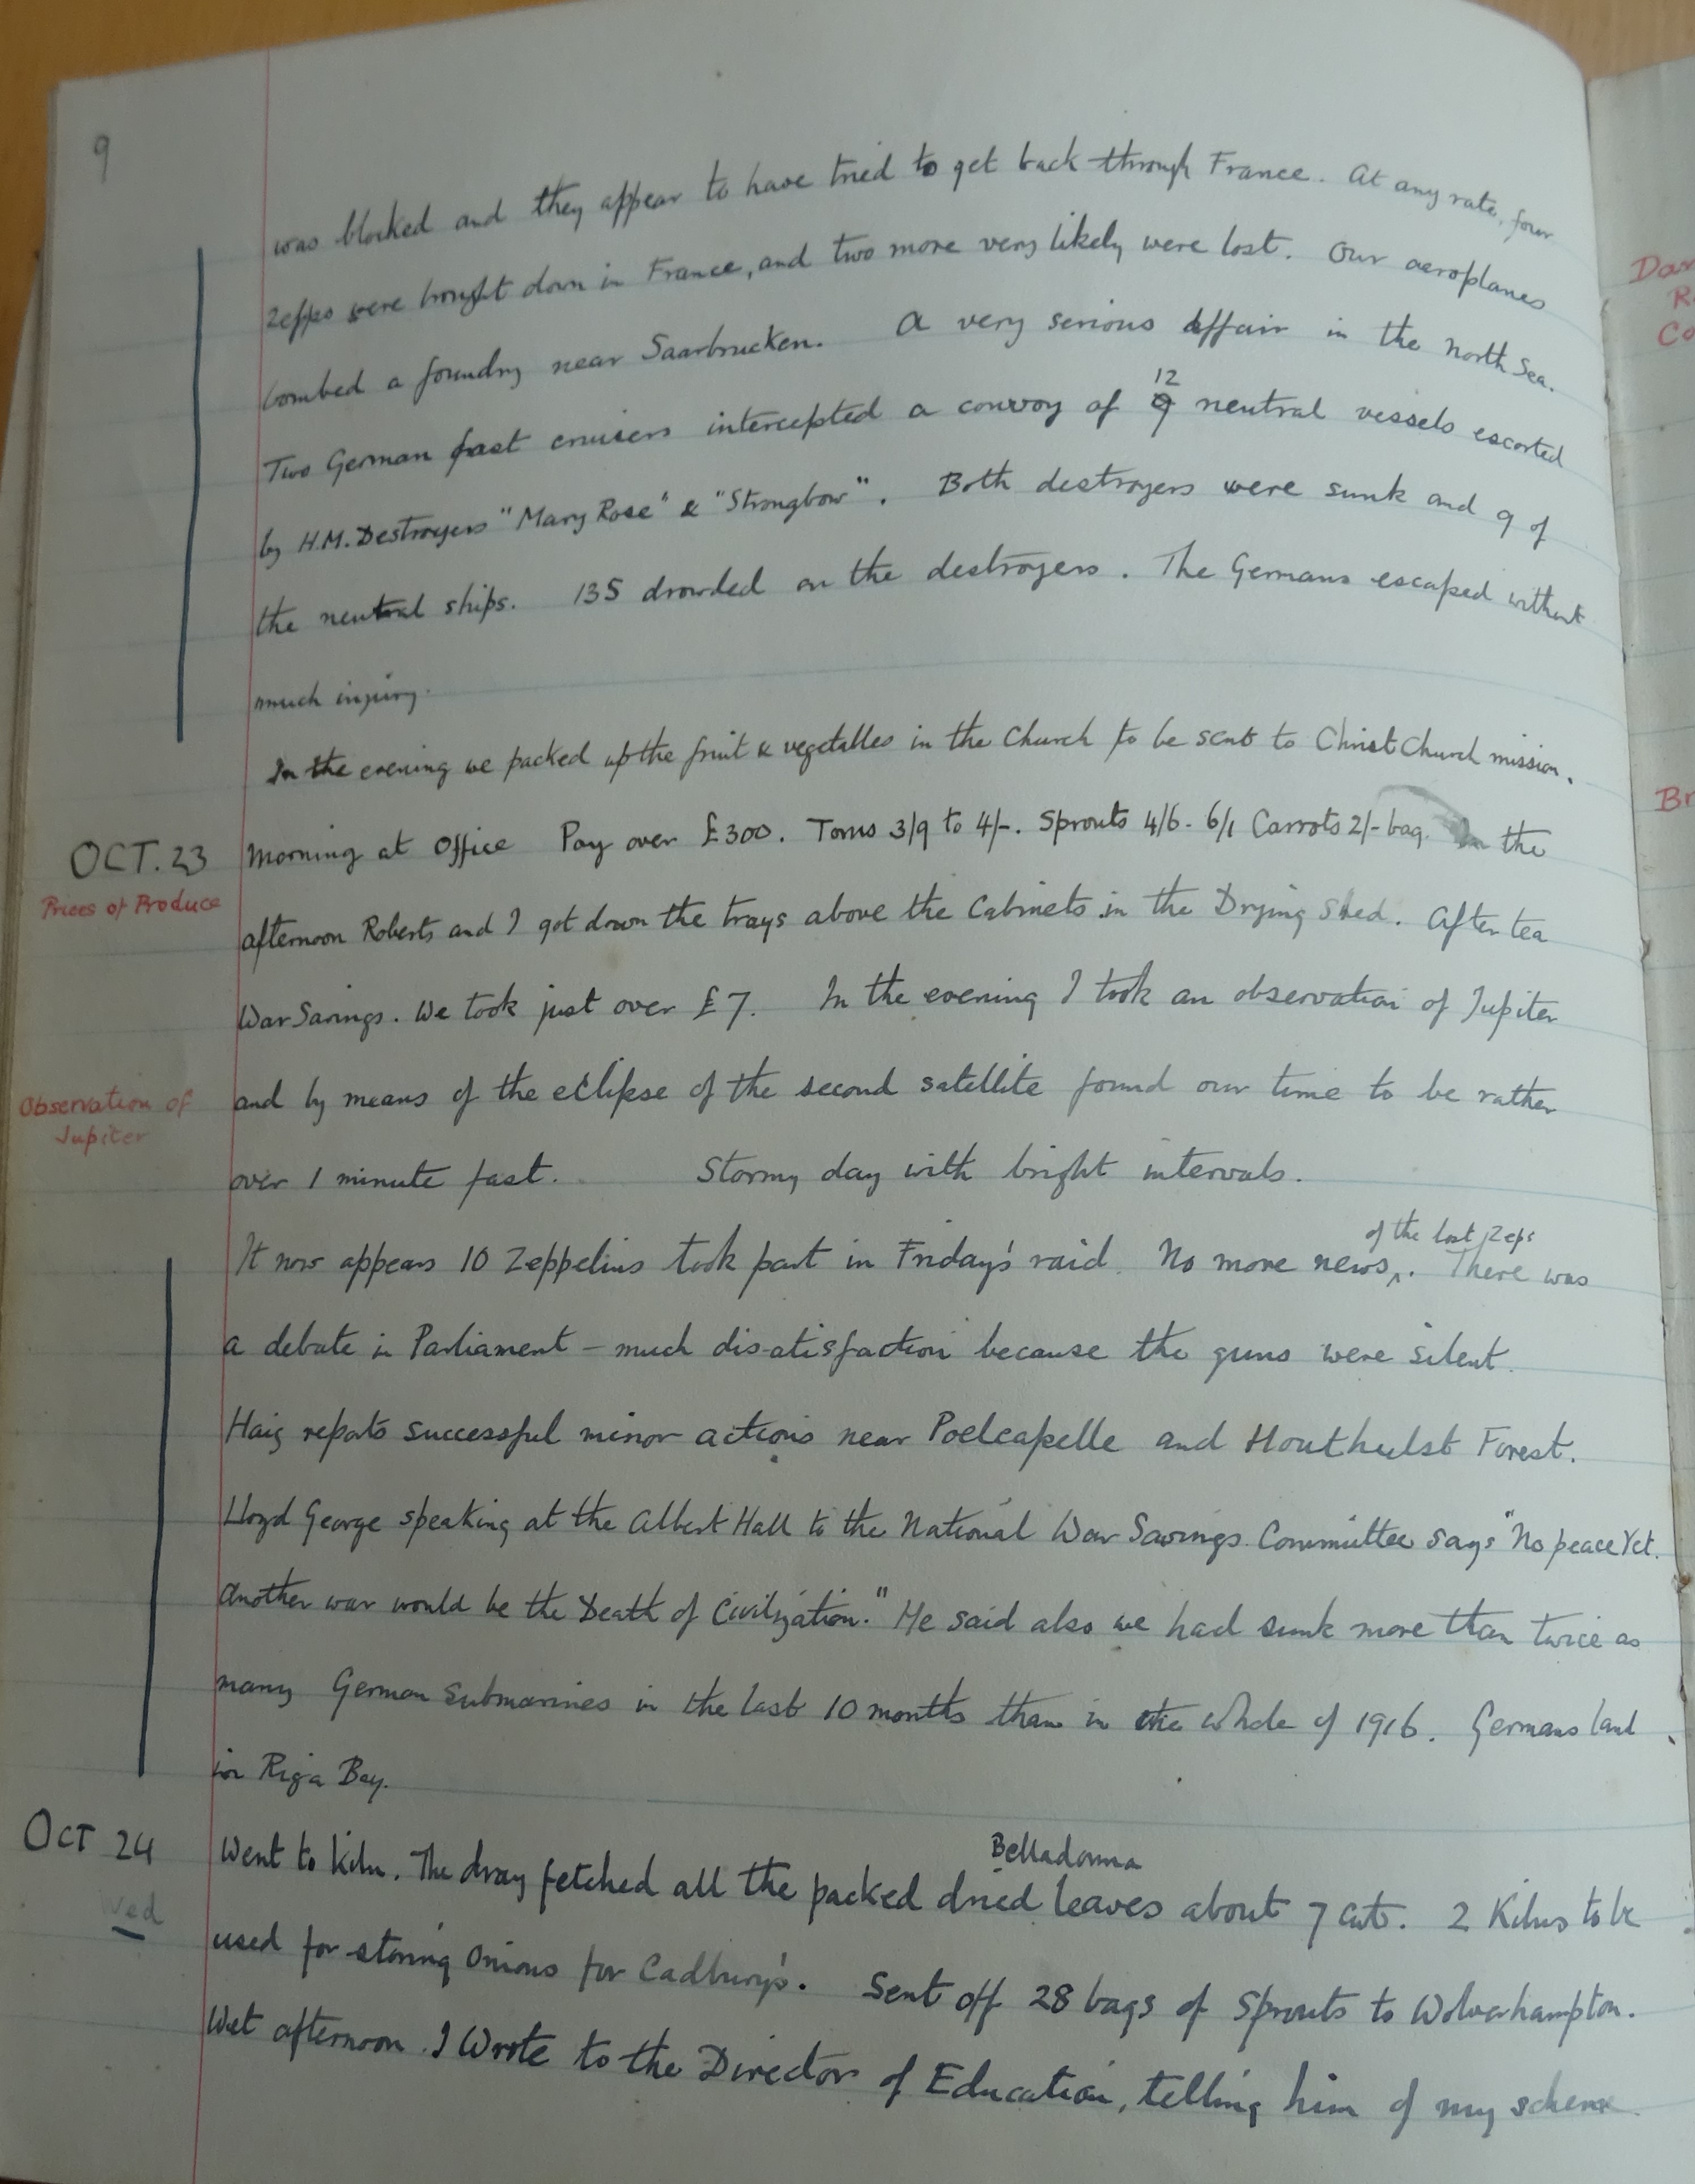 9
was blocked and they appear to have tried to get back through France. At any rate, four
Zepps were brought down in France, and two more very likely were lost. Our aeroplanes
bombed a foundry near Saarbrucken. A very serious affair in the North Sea.
12
Two German fast cruisers intercepted a convoy of 9 neutral vessels escorted
by H.M. Destroyers "Mary Rose" & "Strongbow". Both destroyers were sunk and 9 of
the neutral ships. 135 drowded on the destroyers. The Germans escaped without
much injury.
In the evening we packed up the fruit & vegetables in the Church to be sent to Christ Church mission.
OCT. 23 Morning at Office Pay over £300. Toms 3/9 to 4/-. Sprouts 4/6 - 6/1 Carrots 2/- bag. In the
Prices of Produce
afternoon Roberts and I got down the trays above the Cabinets in the Drying Shed. After tea
War Savings. We took just over £7. In the evening I took an observation of Jupiter
Observation of
Jupiter
and by means of the eclipse of the second satellite found our time to be rather
over 1 minute fast. Stormy day with bright intervals.
of the lost Zeps
It now appears 10 Zeppelins took part in Friday's raid. No more news ^. There was
a debate in Parliament - much disatisfaction because the guns were silent.
Haig reports successful minor actions near Poelcapelle and Houthulst Forest.
Lloyd George speaking at the Albert Hall to the National War Savings Committee says "No peace Yet.
Another war would be the Death of Civilization." He said also we had sunk more than twice as
many German Submarines in the last 10 months than in the whole of 1916. Germans land
in Riga Bay.
OCT 24
Wed
Belladonna
Went to Kiln. The dray fetched all the packed dried leaves about 7 cwts. 2 Kilns to be
used for storing Onions for Cadbury's. Sent off 28 bags of Sprouts to Wolverhampton.
Wet afternoon. I Wrote to the Director of Education, telling him of my scheme.
Co
Br